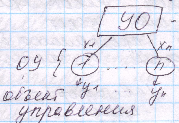 УО
x₁ xₙ
ОУ { 1 ..... n
y₁ ..... yₙ
объект
управления